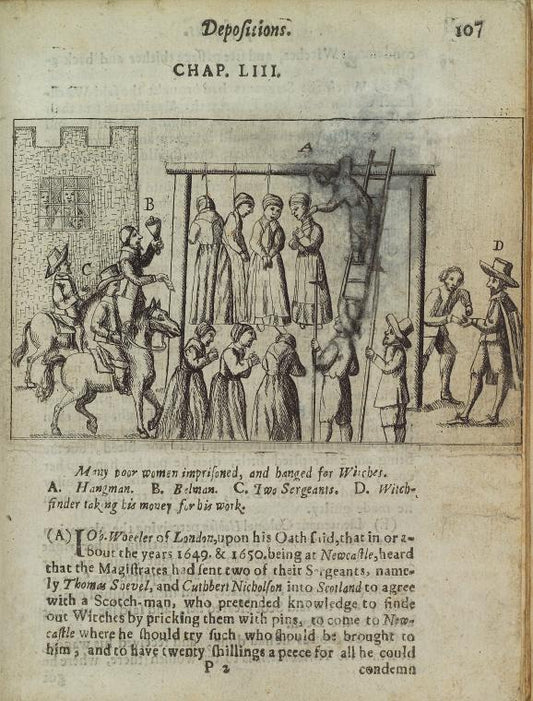 Depositions.
107
CHAP. LIII.
A
B
C
D
Many poor women imprisoned, and hanged for Witches.
A. Hangman. B. Belman. C. Two Sergeants. D. Witch-
finder taking his money for his work.
(A) IOh. Wheeler of London, upon his Oath said, that in or a-
bout the years 1649. & 1650. being at Newcastle, heard
that the Magistrates had sent two of their Sergeants, name-
ly Thomas Shevel, and Cuthbert Nicholson into Scotland to agree
with a Scotch-man, who pretended knowledge to finde
out Witches by pricking them with pins, to come to New-
castle where he should try such who should be brought to
him, and to have twenty shillings a peece for all he could
P 2
condemn